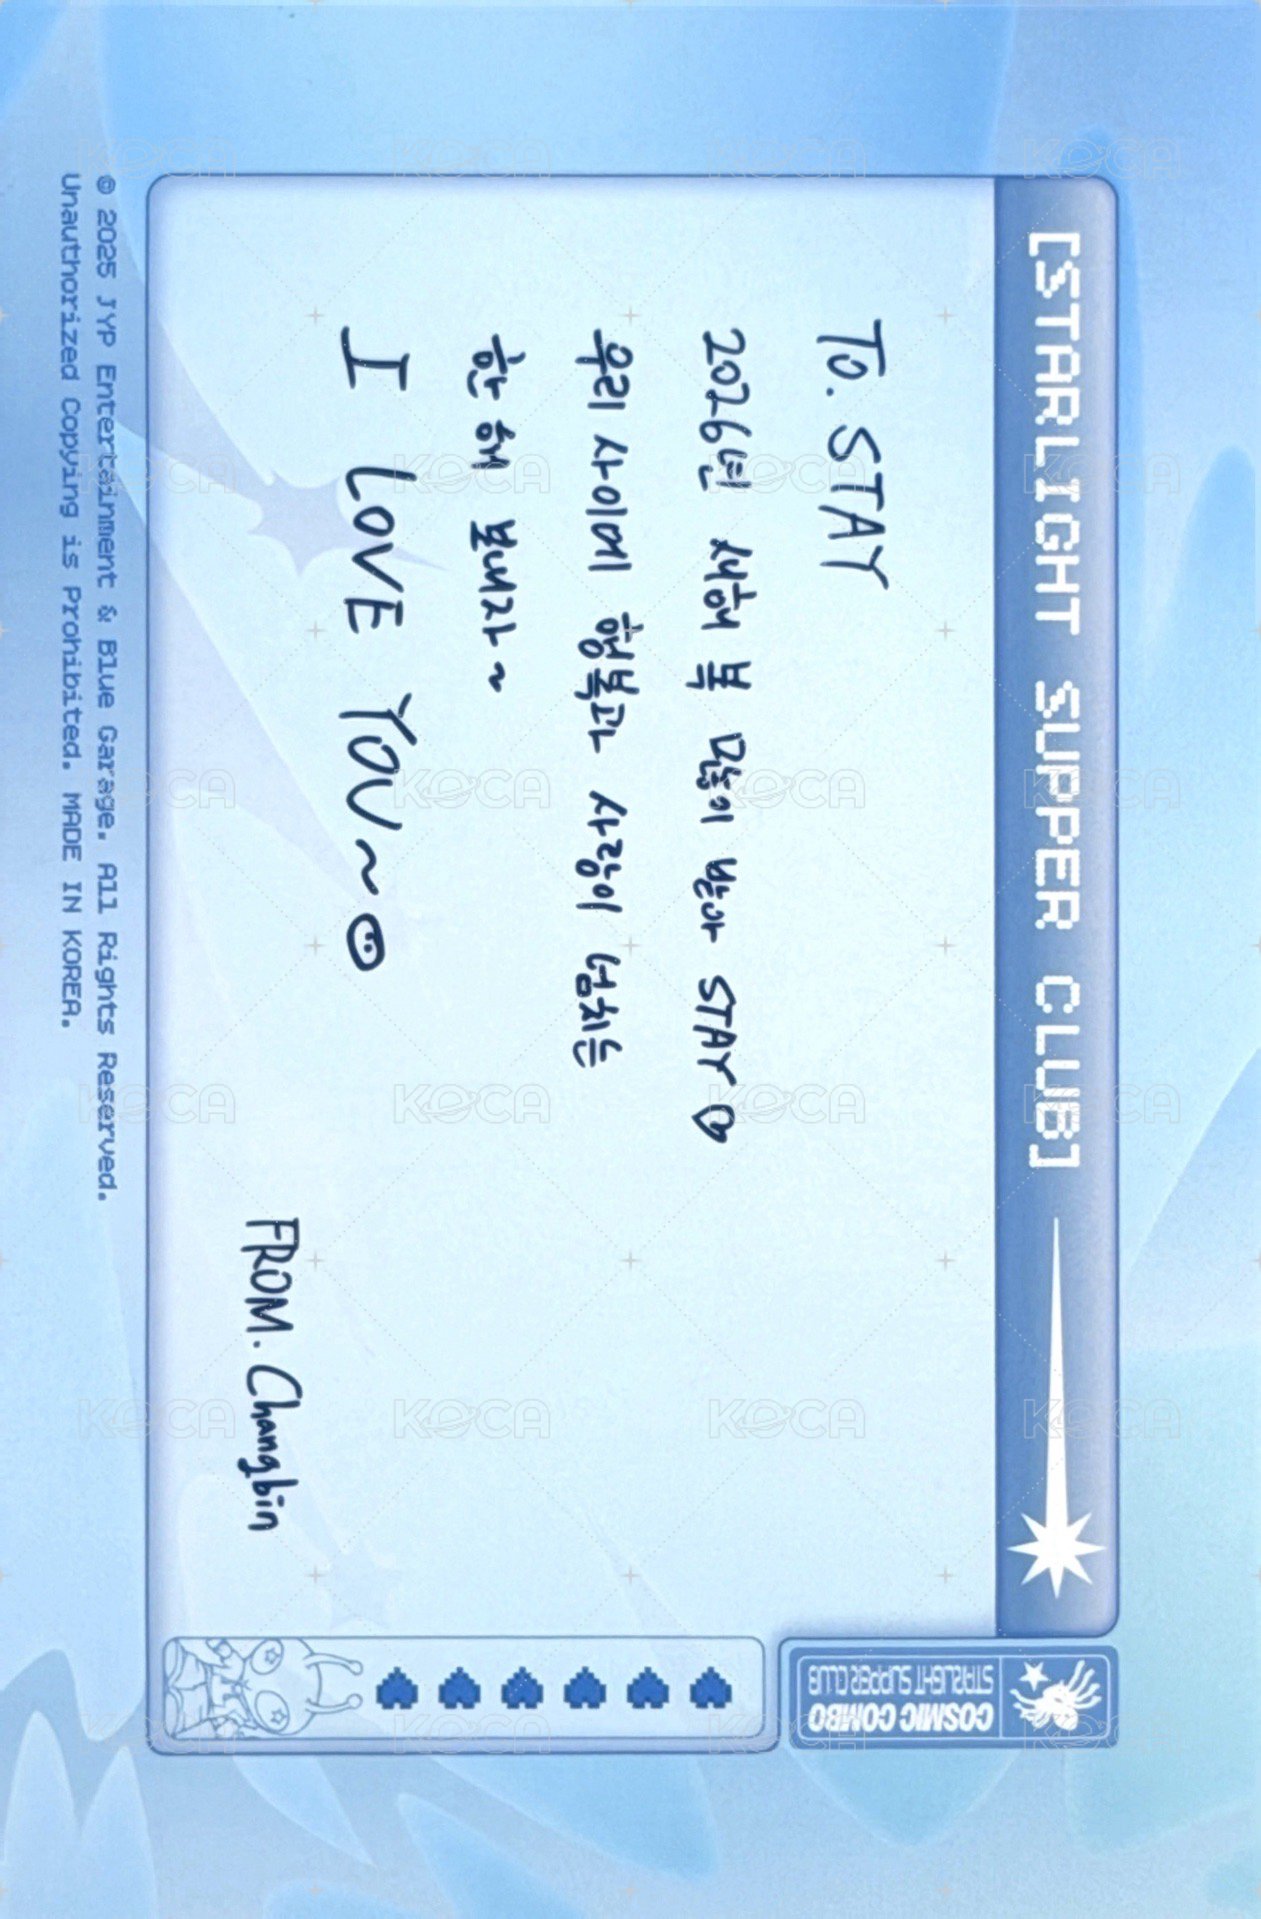 [STARLIGHT SUPPER CLUB]
TO. STAY
2026년 새해 복 많이 받아 STAY♡
우리 사이에 행복과 사랑이 넘치는
한 해 보내자~
I LOVE YOU~
FROM. Changbin
COSMIC COMBO
STARLIGHT SUPPER CLUB
© 2025 JYP Entertainment & Blue Garage. All Rights Reserved.
Unauthorized Copying is Prohibited. MADE IN KOREA.
KOCA